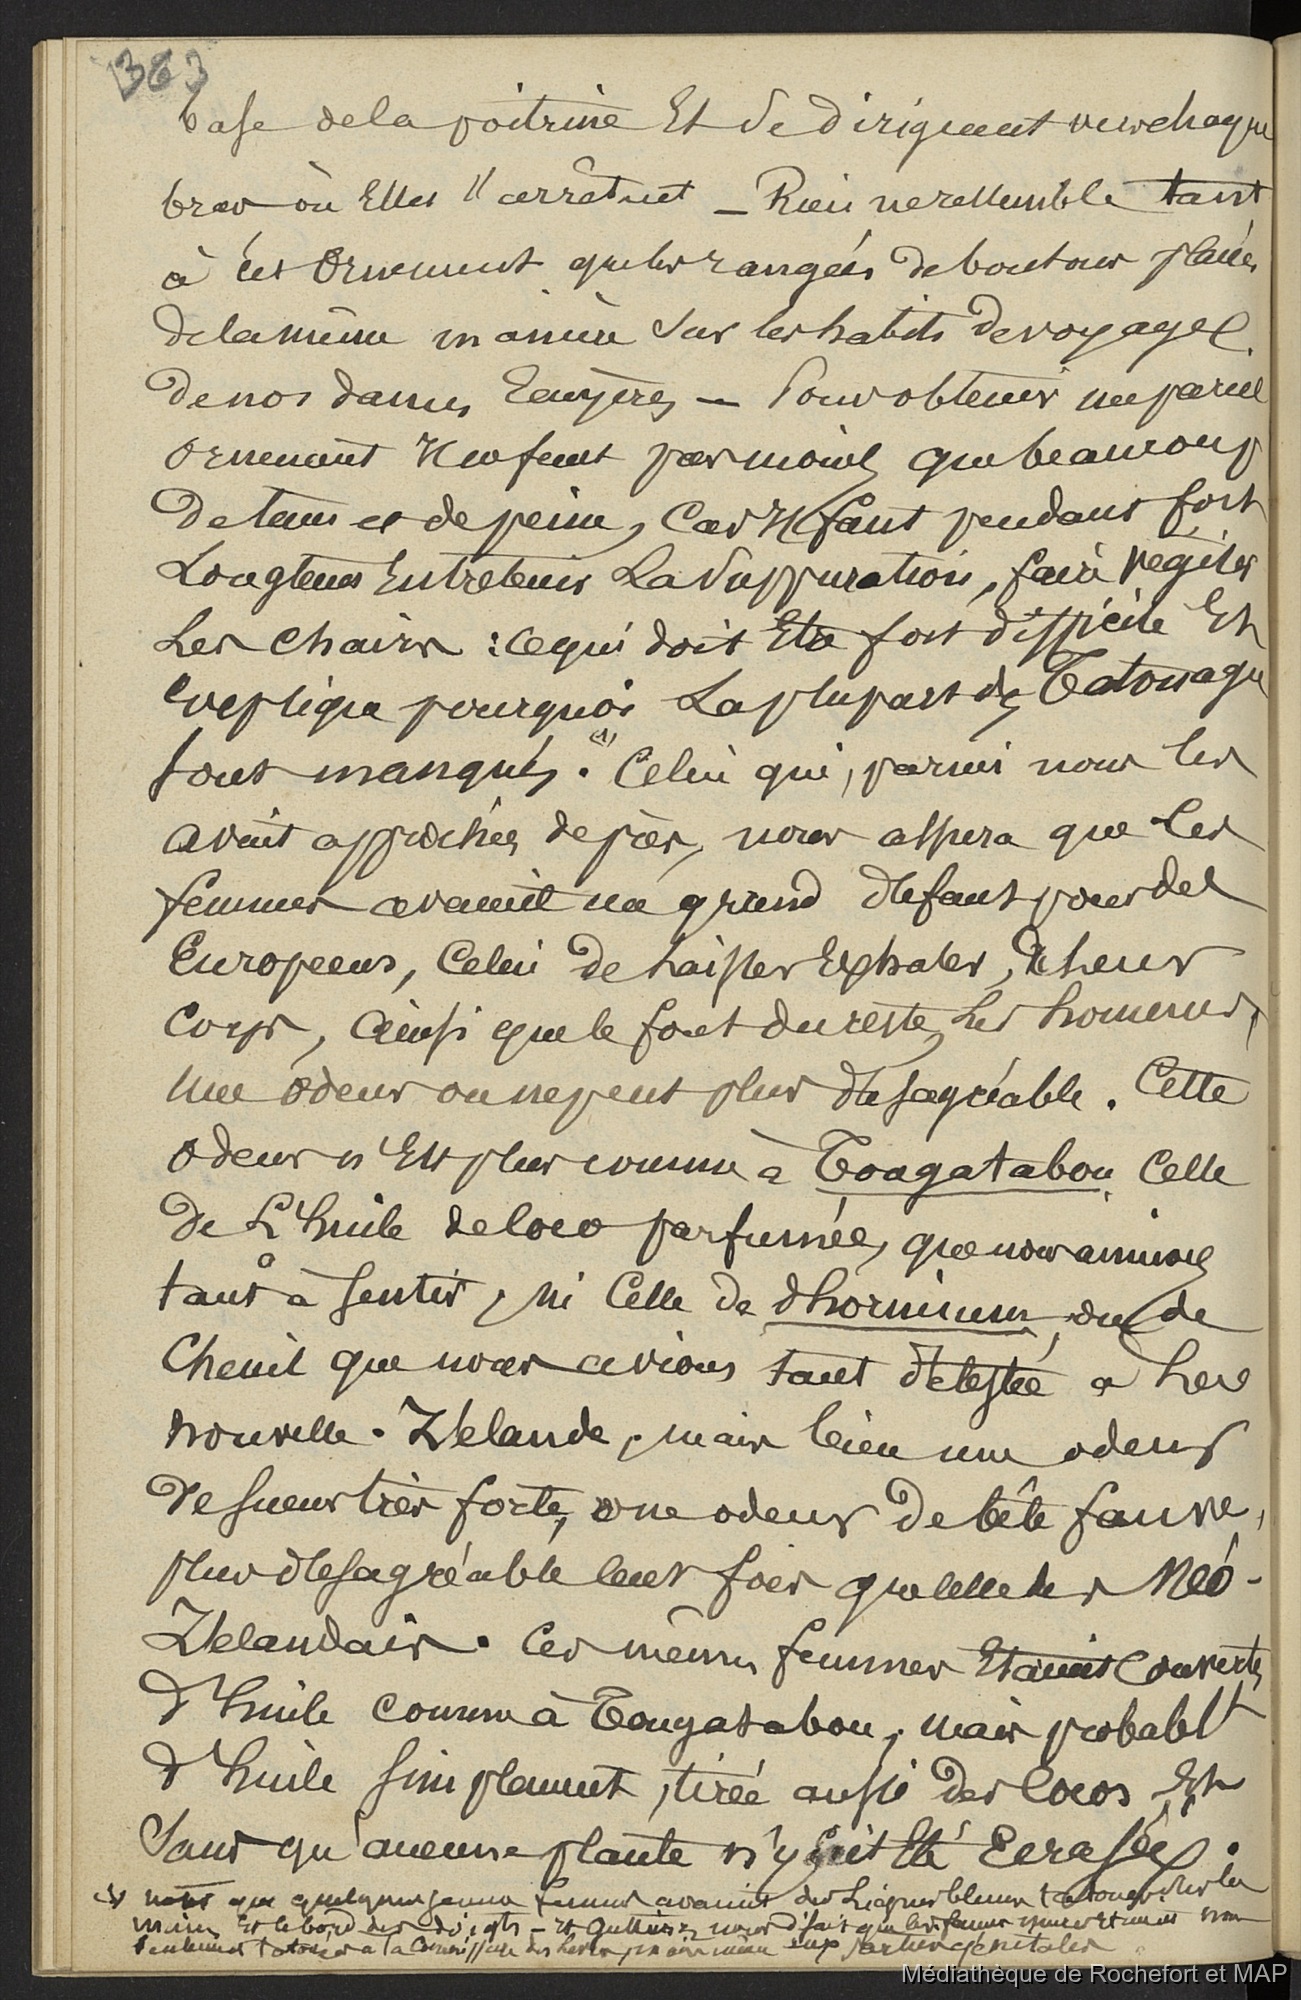 363
base de la poitrine Et Se Dirigeant vers chaque
bras où Elles s'arrêtent – Rien ne ressemble tant
à ces Ornement que les rangées de boutons placés
De la même manière Sur les habits De voyages
De nos dames Ecuyères – Pour obtenir un pareil
ornement Il ne faut pas moins que beaucoup
De tems et de peine, Car Il faut pendant fort
Longtems Entretenir La Suppuration, faire végéter
Les Chairs : ce qui doit Etre fort difficile Et
Explique pourquoi La plupart des Tatouages
sont manqués. (1) Celui qui, parmi nous les
avait approchées de près, nous assura que les
femmes avaient un grand défaut pour des
Européens, Celui De Laisser Exhaler, De Leur
Corps, Ainsi que le font du reste, Les hommes,
Une Odeur on ne peut plus désagréable. Cette
odeur n'Est plus comme à Tongatabou Celle
De L'huile de Coco parfumée, que nous aimions
tant à Sentir, ni Celle De d'horminum ou de
Chenil que nous avions tant détestée à La
Nouvelle-Zélande, mais bien une odeur
De Sueur très forte, une odeur De bête fauve,
plus désagréable cent fois que celle des Néo-
Zélandais. Ces mêmes femmes Etaient Couvertes
D'huile comme à Tongatabou, mais probablt
D'huile Simplement, tirée aussi Des Cocos Et
Sans qu'aucune plante n'y Eut Eté Ecrasée.
(1) que quelques jeunes femmes avaient des Lignes bleues tatouées sur les
mains Et le bord des doigts – Et nous disait que les femmes étaient non
seulement tatouées à la Commissure des Levres, mais même aux parties génitales
Médiathèque de Rochefort et MAP